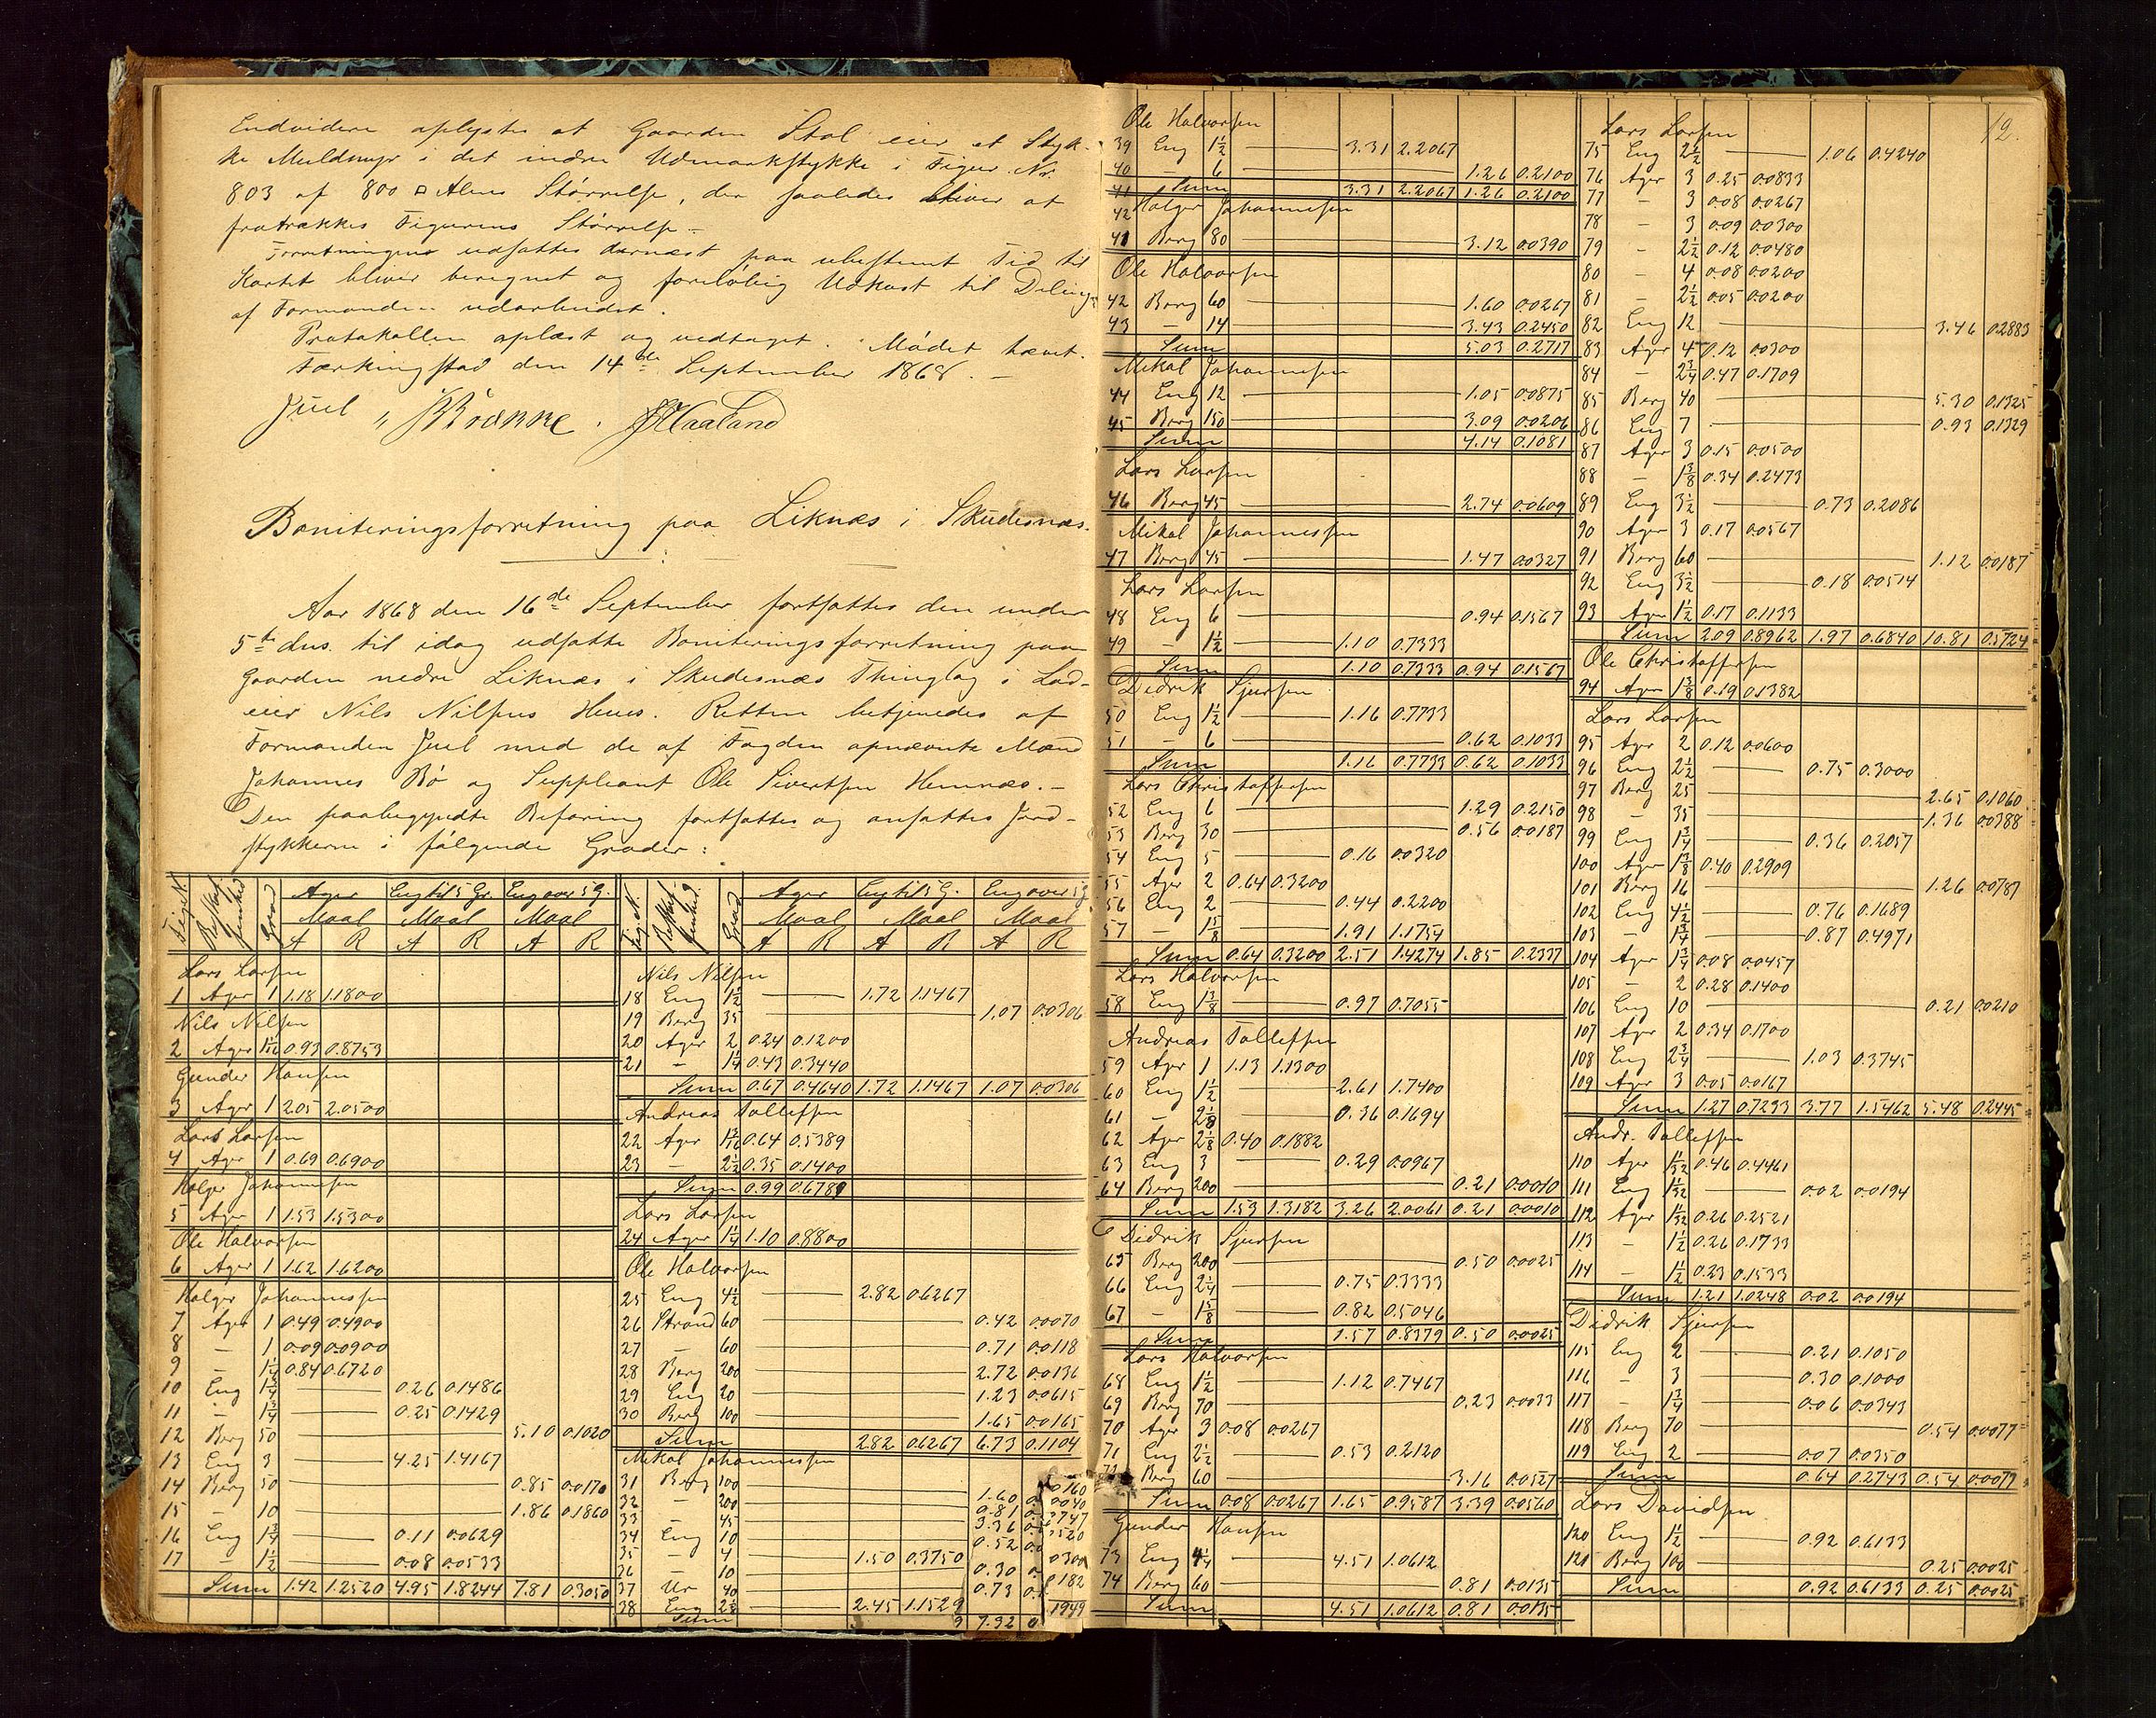 Endvidere oplystes at Gaarden Stol eier et Styk-
ke Muldmyr i det indre Udmarkstykke i Figur Nr.
803 af 800 □ Alens Størrelse, der saaledes bliver at
fratrækkes Figurens Størrelse.
Forretningen udsattes dernæst paa ubestemt Tid til
Kartet bliver beregnet og foreløbig Udkast til Deling
af Formanden udarbeidet.
Protokollen oplæst og vedtaget. Mødet hævet.
Færkingstad den 14de September 1868.
Juel
Boniteringsforretning paa Liknæs i Skudesnæs.
Aar 1868 den 16de September fortsattes den under
5te dns. til idag udsatte Boniteringsforretning paa
Gaarden nedre Liknæs i Skudesnæs Thinglag i Lod-
eier Nils Nilsens Huus. Retten betjenedes af
Formanden Juel med de af Fogden opnævnte Mænd
Johannes Bø og Suppleant Ole Sivertsen Hemnæs.
Den paabegyndte Befaring fortsattes og ansattes Jord-
stykkerne i følgende Grader:
Fig. Nr. Grad Ager Eng til 5 Gr. Eng over 5 G.
Maal Maal Maal
A R A R A R
Lars Larsen
1 Ager 1 1.18 1.1800
Nils Nilsen
2 Ager 1 1/16 0.93 0.8753
Gunder Hansen
3 Ager 1 2.05 2.0500
Lars Larsen
4 Ager 1 0.69 0.6900
Holger Johannesen
5 Ager 1 1.53 1.5300
Ole Halvorsen
6 Ager 1 1.62 1.6200
Holger Johannessen
7 Ager 1 0.49 0.4900
8 – 1 0.09 0.0900
9 – 1 1/4 0.84 0.6720
10 Eng 1 3/4 0.26 0.1486
11 – 1 3/4 0.25 0.1429
12 Berg 50 5.10 0.1020
13 Eng 3 4.25 1.4167
14 Berg 50 0.85 0.0170
15 – 10 1.86 0.1860
16 Eng 1 3/4 0.11 0.0629
17 – 1 1/2 0.08 0.0533
Sum 1.42 1.2520 4.95 1.8244 7.81 0.3050
Fig. N. Grad Ager Eng til 5 G. Eng over 5 G
Maal Maal Maal
A R A R A R
Nils Nilsen
18 Eng 1 1/2 1.72 1.1467
19 Berg 35 1.07 0.0306
20 Ager 2 0.24 0.1200
21 – 1 1/4 0.43 0.3440
Sum 0.67 0.4640 1.72 1.1467 1.07 0.0306
Andreas Tollefsen
22 Ager 1 3/16 0.64 0.5389
23 – 2 1/2 0.35 0.1400
Sum 0.99 0.6789
Lars Larsen
24 Ager 1 1/4 1.10 0.8800
Ole Halvorsen
25 Eng 4 1/2 2.82 0.6267
26 Strand 60 0.42 0.0070
27 – 60 0.71 0.0118
28 Berg 200 2.72 0.0136
29 Eng 20 1.23 0.0615
30 Berg 100 1.65 0.0165
Sum 2.82 0.6267 6.73 0.1104
Mikal Johannessen
31 Berg 100 1.60 0.0160
32 – 200 0.81 0.0040
33 – 45 3.36 0.0747
34 Eng 10 0.52 0.0520
35 – 4 1.50 0.3750
36 – 10 0.30 0.0300
37 Ur 40 0.73 0.0182
38 Eng 2 1/8 2.45 1.1529
Sum 7.32 0.1949
12.
Ole Halvorsen
39 Eng 1 1/2 3.31 2.2067
40 – 6 1.26 0.2100
41 Sum 3.31 2.2067 1.26 0.2100
42 Holger Johannessen
41 Berg 80 3.12 0.0390
Ole Halvorsen
42 Berg 60 1.60 0.0267
43 – 14 3.43 0.2450
Sum 5.03 0.2717
Mikal Johannessen
44 Eng 12 1.05 0.0875
45 Berg 150 3.09 0.0206
Sum 4.14 0.1081
Lars Larsen
46 Berg 45 2.74 0.0609
Mikal Johannessen
47 Berg 45 1.47 0.0327
Lars Larsen
48 Eng 6 0.94 0.1567
49 – 1 1/2 1.10 0.7333
Sum 1.10 0.7333 0.94 0.1567
Didrik Sjursen
50 Eng 1 1/2 1.16 0.7733
51 – 6 0.62 0.1033
Sum 1.16 0.7733 0.62 0.1033
Lars Christoffersen
52 Eng 6 1.29 0.2150
53 Berg 30 0.56 0.0187
54 Eng 5 0.16 0.0320
55 Ager 2 0.64 0.3200
56 Eng 2 0.44 0.2200
57 – 1 5/8 1.91 1.1754
Sum 0.64 0.3200 2.51 1.4274 1.85 0.2337
Lars Halvorsen
58 Eng 1 3/8 0.97 0.7055
Andreas Tollefsen
59 Ager 1 1.13 1.1300
60 Eng 1 1/2 2.61 1.7400
61 – 2 1/8 0.36 0.1694
62 Ager 2 1/8 0.40 0.1882
63 Eng 3 0.29 0.0967
64 Berg 200 0.21 0.0010
Sum 1.53 1.3182 3.26 2.0061 0.21 0.0010
Didrik Sjursen
65 Berg 200 0.50 0.0025
66 Eng 2 1/4 0.75 0.3333
67 – 1 5/8 0.82 0.5046
Sum 1.57 0.8379 0.50 0.0025
Lars Halvorsen
68 Eng 1 1/2 1.12 0.7467
69 Berg 70 0.23 0.0033
70 Ager 3 0.08 0.0267
71 Eng 2 1/2 0.53 0.2120
72 Berg 60 3.16 0.0527
Sum 0.08 0.0267 1.65 0.9587 3.39 0.0560
Gunder Hansen
73 Eng 4 1/4 4.51 1.0612
74 Berg 60 0.81 0.0135
Sum 4.51 1.0612 0.81 0.0135
Lars Larsen
75 Eng 2 1/2 1.06 0.4240
76 Ager 3 0.25 0.0833
77 – 3 0.08 0.0267
78 – 3 0.09 0.0300
79 – 2 1/2 0.12 0.0480
80 – 4 0.08 0.0200
81 – 2 1/2 0.05 0.0200
82 Eng 12 3.46 0.2883
83 Ager 4 0.12 0.0300
84 – 2 3/4 0.47 0.1709
85 Berg 40 5.30 0.1325
86 Eng 7 0.93 0.1329
87 Ager 3 0.15 0.0500
88 – 1 3/8 0.34 0.2473
89 Eng 3 1/2 0.73 0.2086
90 Ager 3 0.17 0.0567
91 Berg 60 1.12 0.0187
92 Eng 3 1/2 0.18 0.0514
93 Ager 1 1/2 0.17 0.1133
Sum 2.09 0.8962 1.97 0.6840 10.81 0.5724
Ole Christoffersen
94 Ager 1 3/8 0.19 0.1382
Lars Larsen
95 Ager 2 0.12 0.0600
96 Eng 2 1/2 0.75 0.3000
97 Berg 25 2.65 0.1060
98 – 35 1.36 0.0388
99 Eng 1 3/4 0.36 0.2057
100 Ager 1 3/8 0.40 0.2909
101 Berg 16 1.26 0.0787
102 Eng 4 1/2 0.76 0.1689
103 – 1 3/4 0.87 0.4971
104 Ager 1 3/4 0.08 0.0457
105 – 2 0.28 0.1400
106 Eng 10 0.21 0.0210
107 Ager 2 0.34 0.1700
108 Eng 2 3/4 1.03 0.3745
109 Ager 3 0.05 0.0167
Sum 1.27 0.7233 3.77 1.5462 5.48 0.2445
Andr. Tollefsen
110 Ager 1 1/32 0.46 0.4461
111 Eng 1 1/32 0.02 0.0194
112 Ager 1 1/32 0.26 0.2521
113 – 1 1/2 0.26 0.1733
114 – 1 1/2 0.23 0.1533
Sum 1.21 1.0248 0.02 0.0194
Didrik Sjursen
115 Eng 2 0.21 0.1050
116 – 3 0.30 0.1000
117 – 1 3/4 0.06 0.0343
118 Berg 70 0.54 0.0077
119 Eng 2 0.07 0.0350
Sum 0.64 0.2743 0.54 0.0077
Lars Davidsen
120 Eng 1 1/2 0.92 0.6133
121 Berg 100 0.25 0.0025
Sum 0.92 0.6133 0.25 0.0025